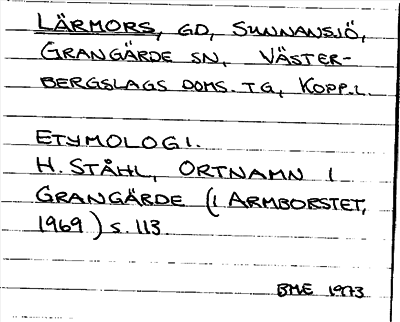 LÄRMORS, GD, SUNNANSJÖ,
GRANGÄRDE SN, VÄSTER-
BERGSLAGS DOMS. TG, KOPP.L.
ETYMOLOGI.
H. STÅHL, ORTNAMN I
GRANGÄRDE (I ARMBORSTET,
1969) S. 113.
BME 1973